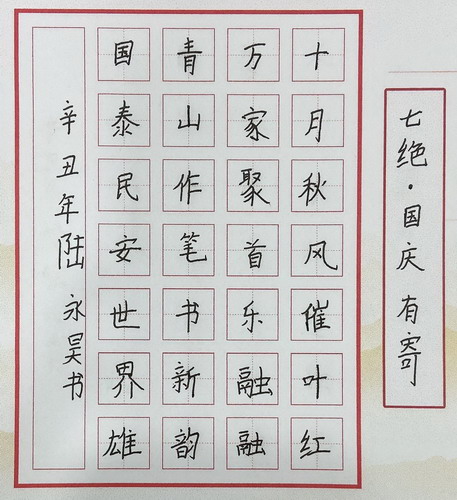 七绝·国庆有寄
十月秋风催叶红
万家聚首乐融融
青山作笔书新韵
国泰民安世界雄
辛丑年陆永昊书